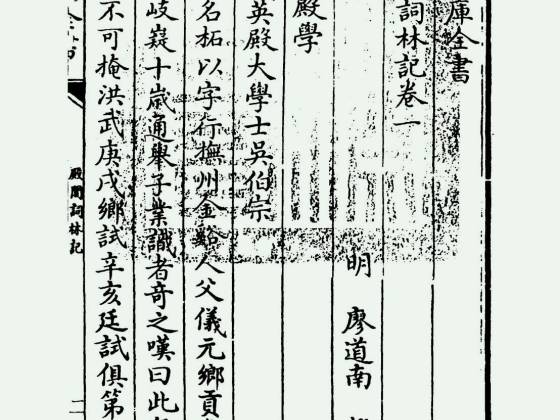 庫全書
詞林記卷一
明 廖道南
殿學
英殿大學士吳伯宗
名祏以字行撫州金谿人父儀元鄉貢
岐嶷十歲通舉子業識者竒之嘆曰此
不可掩洪武庚戌鄉試辛亥廷試俱第
殿閣詞林記
二